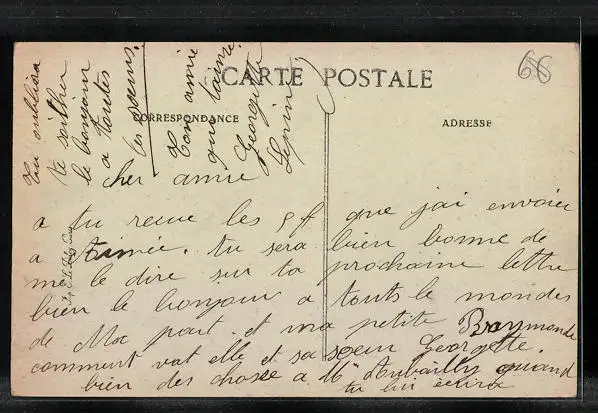 CARTE POSTALE
CORRESPONDANCE
ADRESSE
68
cher amie
a tu recue les 9 f que jai envoier
a Aimée. tu sera bien bonne de
me le dire sur ta prochaine lettre
bien le bonjour a touts le mondes
de Ma part. et ma petite Raymonde
comment vat elle et sa soeur Georgette.
bien des chosse a Mme Aubailly quand
tu lui écrira
Tu oublira
le bonjour
a toutes
les soeurs.
Ton amie
qui t'aime
Georgette
Lepine